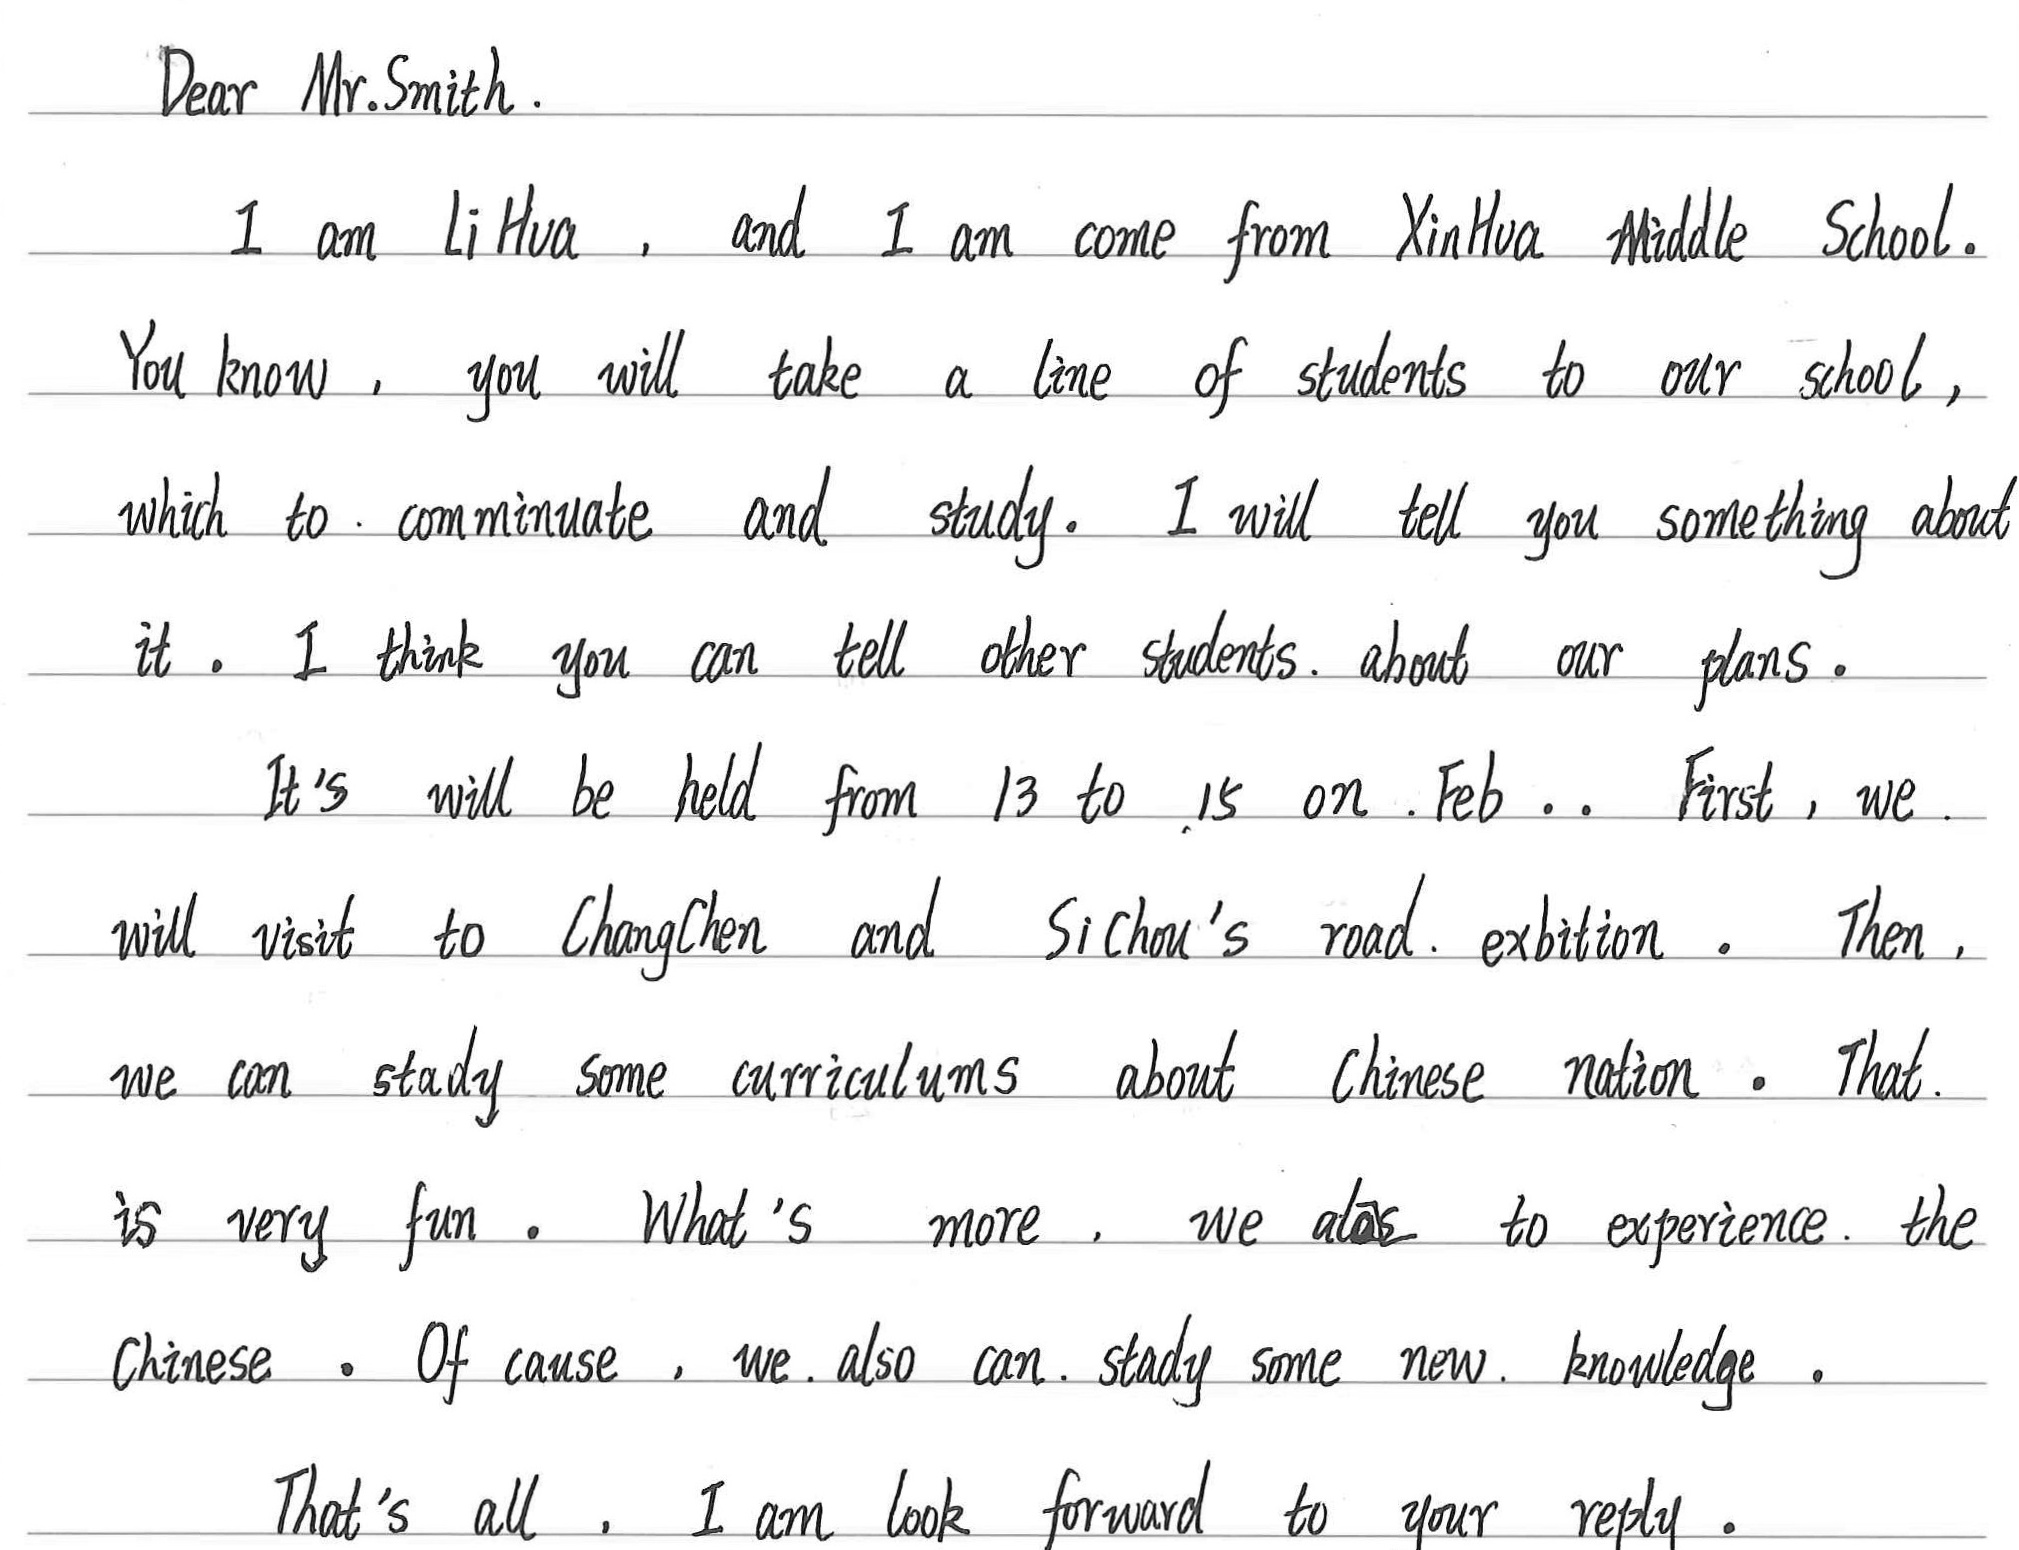 Dear Mr. Smith.
I am Li Hua, and I am come from XinHua Middle School.
You know, you will take a line of students to our school,
which to comminuate and study. I will tell you something about
it. I think you can tell other students. about our plans.
It's will be held from 13 to 15 on Feb.. First, we
will visit to ChangChen and SiChou's road. exbition. Then,
we can stady some curriculums about Chinese nation. That.
is very fun. What's more, we to experience. the
Chinese. Of cause, we. also can. stady some new. knowledge.
That's all. I am look forward to your reply.